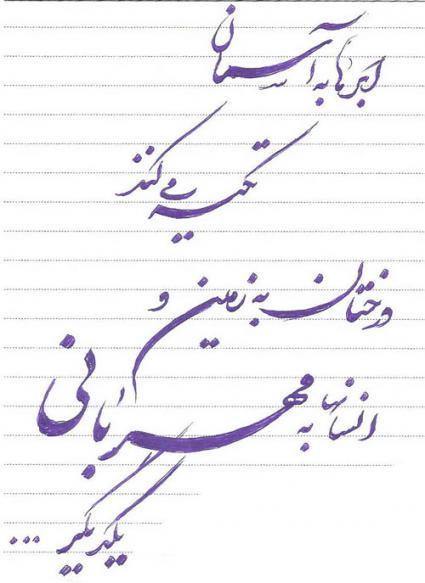 ابرها به آسمان
تکیه می‌کنند
درختان به زمین و
انسانها به مهربانی
یکدیگر ...